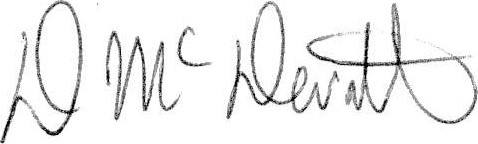 D McDevitt